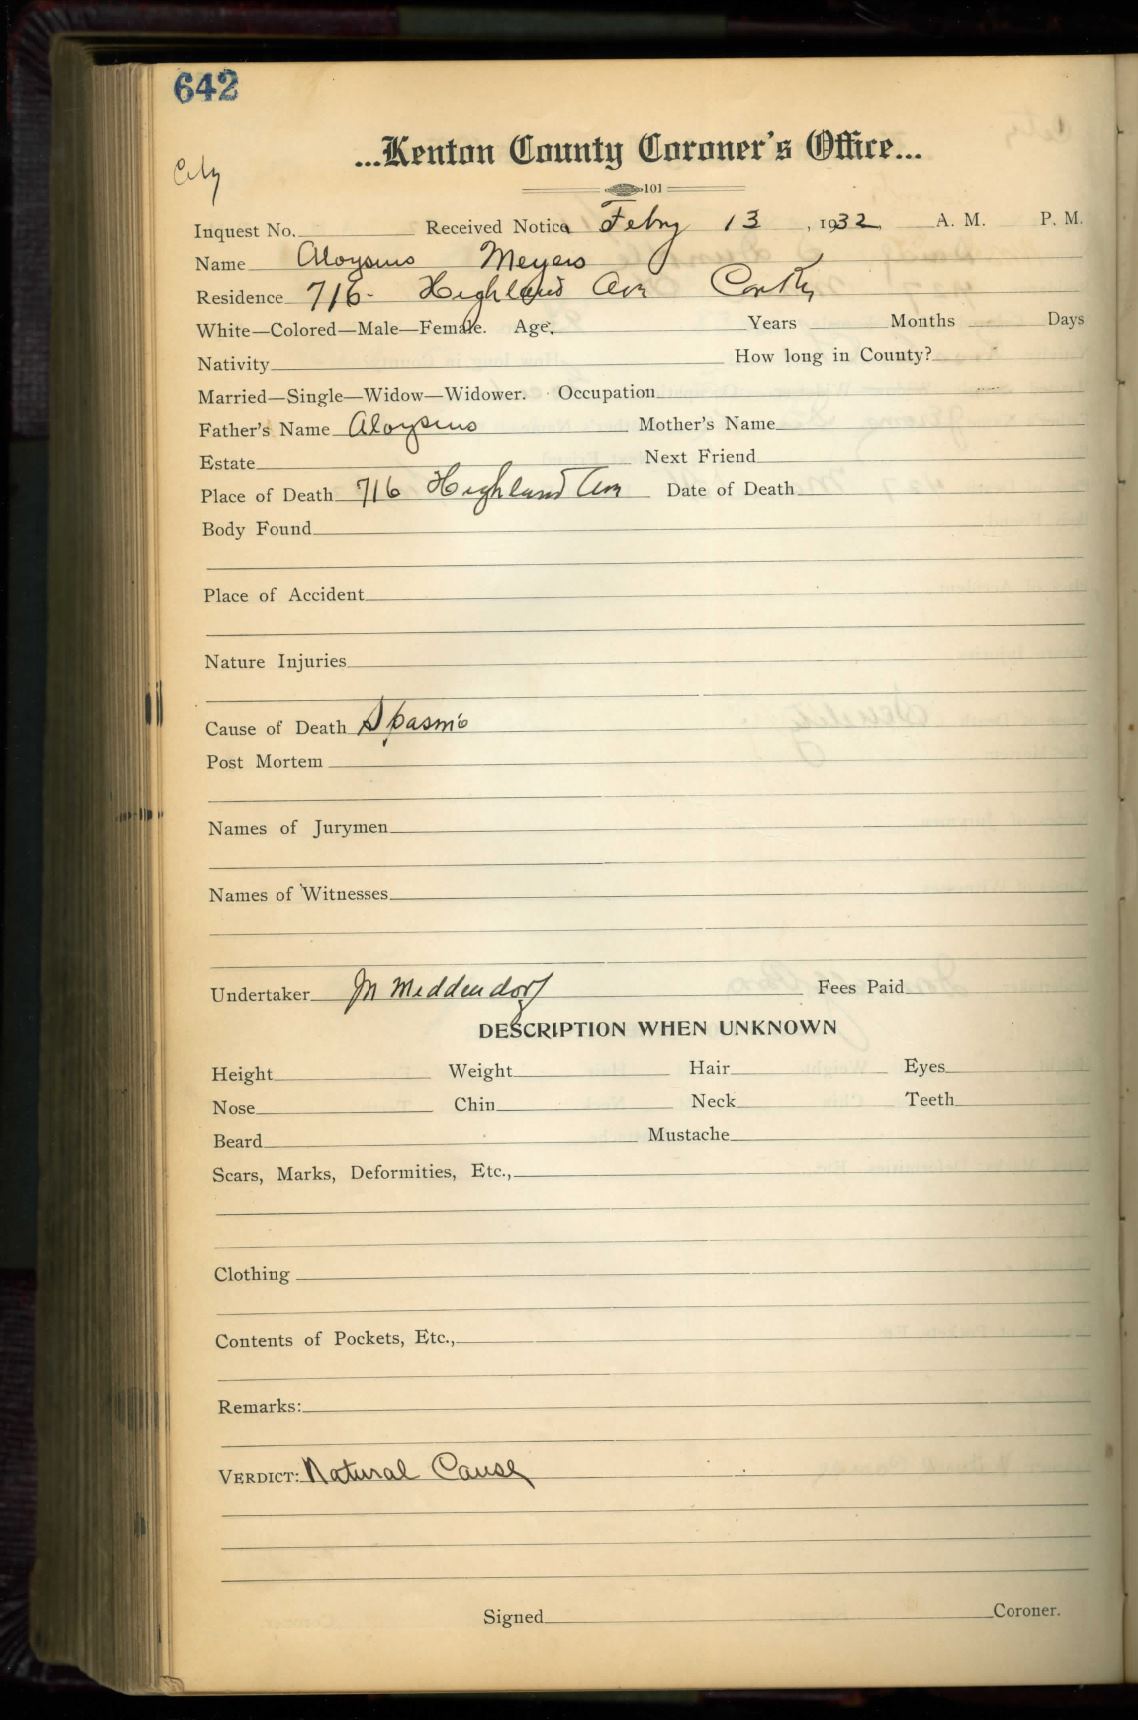 642
...Kenton County Coroner's Office...
City
101
Inquest No. Received Notice Febry 13, 1932, A. M. P. M.
Name Aloysius Meyers
Residence 716- Highland Ave Cov Ky
White—Colored—Male—Female. Age, Years Months Days
Nativity How long in County?
Married—Single—Widow—Widower. Occupation
Father's Name Aloysius Mother's Name
Estate Next Friend
Place of Death 716 Highland Ave Date of Death
Body Found
Place of Accident
Nature Injuries
Cause of Death Spasms
Post Mortem
Names of Jurymen
Names of Witnesses
Undertaker Jn Middendorf Fees Paid
DESCRIPTION WHEN UNKNOWN
Height Weight Hair Eyes
Nose Chin Neck Teeth
Beard Mustache
Scars, Marks, Deformities, Etc.,
Clothing
Contents of Pockets, Etc.,
Remarks:
VERDICT: Natural Cause
Signed Coroner.